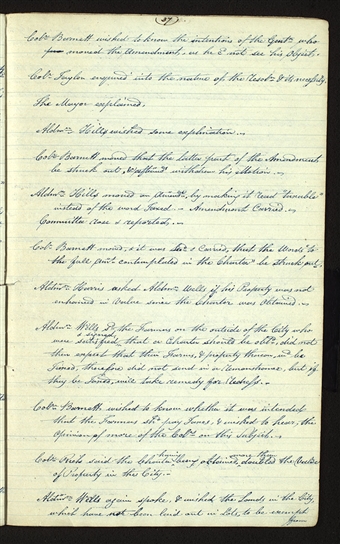 57
Colr. Burnett wished to know the intentions of the Gentn. who
moved the Amendment, as he cd. not see his Object.
Colr. Taylor enquired into the nature of the Resotn. & its necessity.
The Mayor explained.
Aldmn. Wells wished some explanation.
Colr. Burnett moved that the latter part of the Amendment
be struck out, & withdrew his Motion.
Aldmn. Wells moved an Amendt. by making it read "taxable"
instead of the word Taxed. Amendment Carried.
Committee rose & reported.
Colr. Burnett moved, & it was Secd. & Carried, that the Words "to
the full contemplated in the Charter" be struck out.
Aldmn. Harris asked Aldmn. Wells if his Property was not
enhanced in Value since the Charter was Obtained.
Aldmn. Wells, sd. the Farmers on the outside of the City who
were satisfied that a Charter should be obtd. did not
then expect that their Farms, & property thereon, wd. be
Taxed, therefore did not send in a Remonstrance, but if
they be Taxed, will take remedy for Redress.
Colr. Burnett wished to know whether it was intended
that the Farmers shd. pay Taxes, & wished to hear, the
Opinion of more of the Colrs. on this Subject.
Colr. said the Charter having been obtained, doubled the Value
of Property in the City.
Aldmn. Wells again spoke, & wished the Lands in the City,
which have not been laid out in Lots, to be exempt
from